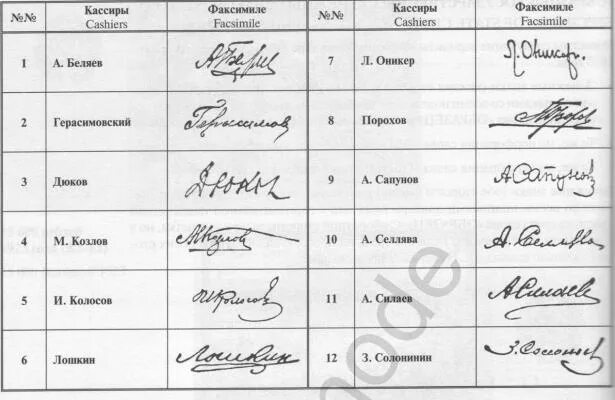 №№ Кассиры Факсимиле №№ Кассиры Факсимиле
Cashiers Facsimile Cashiers Facsimile
1 А. Беляев А Беляев 7 Л. Оникер Л. Оникер.
2 Герасимовский Герасимов 8 Порохов Порох
3 Дюков Дюков 9 А. Сапунов А. Сапунов
4 М. Козлов МКозлов 10 А.Селлява А. Селлява
5 И. Колосов ИКолосов 11 А. Силаев АСилаев
6 Лошкин Лошкин 12 З. Солонинин З. Солонин
mode